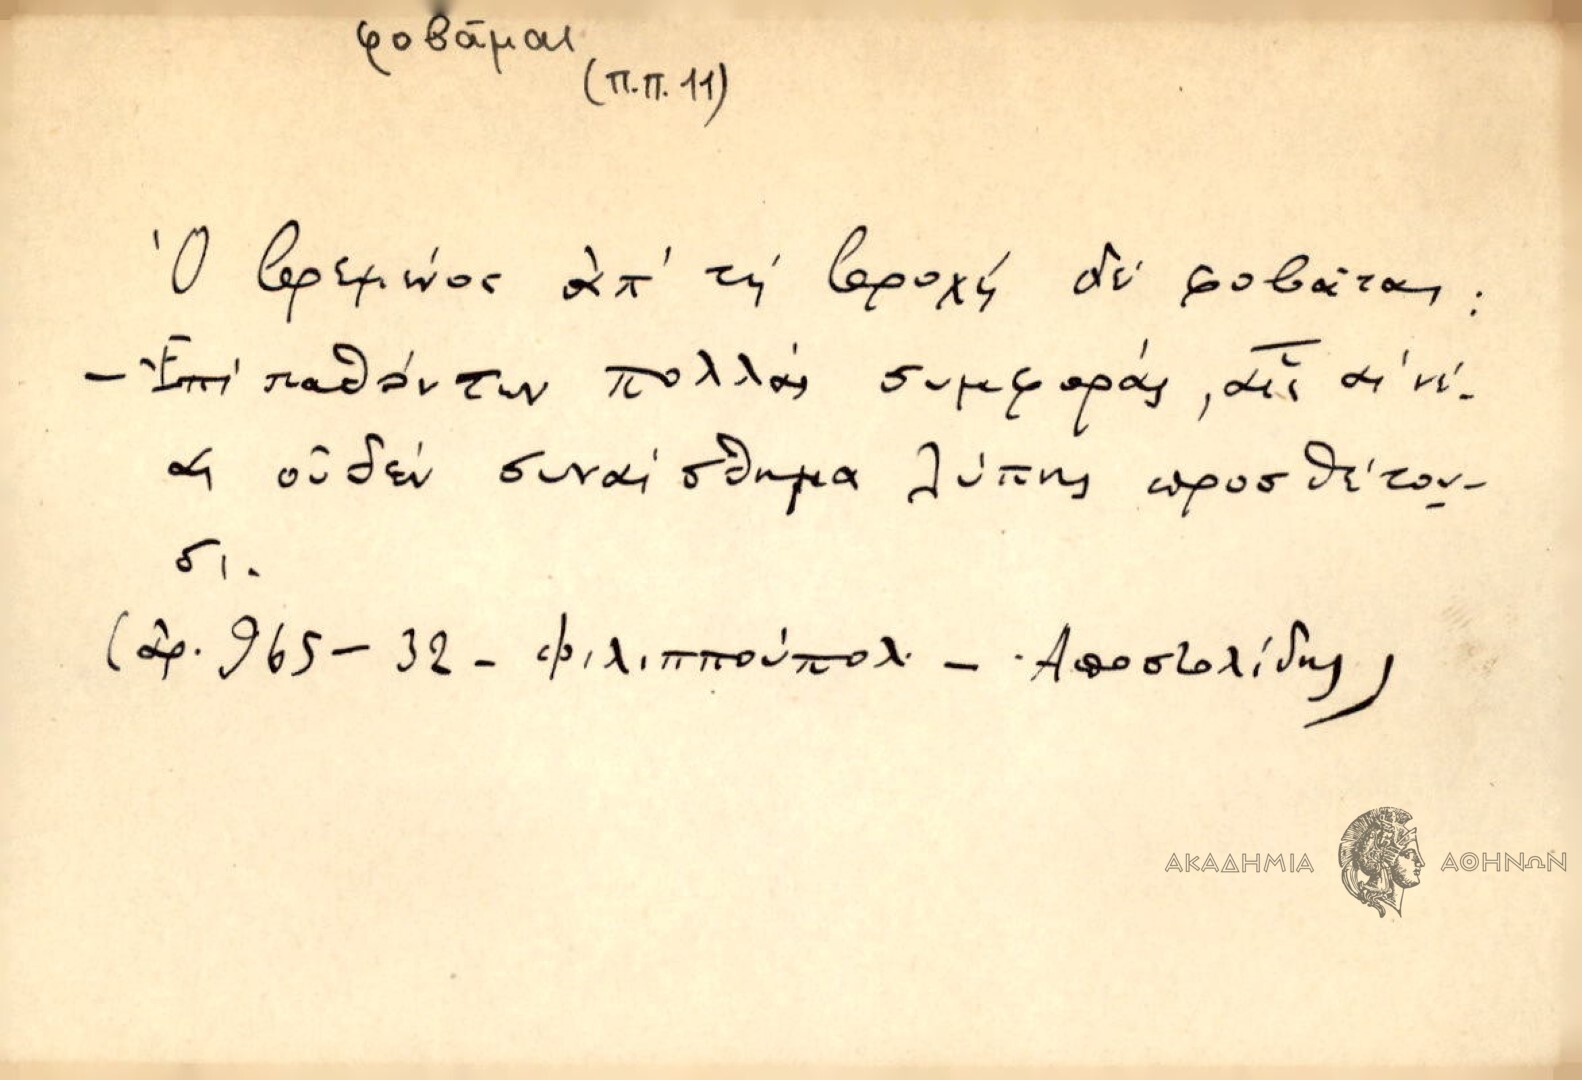 φοβᾶμαι
(Π.Π. 11)
Ὁ βρεμένος ἀπ' τή βροχή δέ φοβᾶται:
— Ἐπί παθόντων πολλάς συμφοράς, αἷς αἱ νέ-
αι οὐδέν συναίσθημα λύπης προσθέτου-
σι.
(ἀρ. 965 – 32 – Φιλιππούπολ. – Ἀποστολίδης)
ΑΚΑΔΗΜΙΑ ΑΘΗΝΩΝ